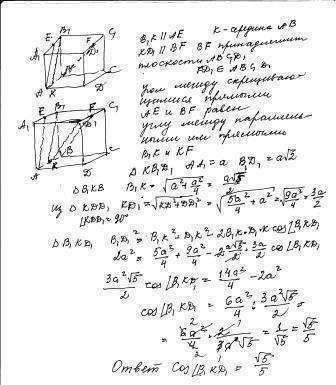 B₁K || AE   K-середина AB
KD₁ || BF   BF принадлежит
плоскости ABC₁D₁
FD₁ ∈ ABC₁D₁
угол между скрещиваю-
щимися прямыми
AE и BF равен
углу между параллель-
ными им прямыми
B₁K и KF
△ KB₁D₁   AA₁ = a   BD₁ = a√2
△ B₁KB   B₁K = √(a² + a²/4) = a√5/2
из △ KDD₁   KD₁ = √(KD² + DD₁²) = √(5a²/4 + a²) = √(9a²/4) = 3a/2
∠KDD₁ = 90°
△ B₁KD₁   B₁D₁² = B₁K² + D₁K² - 2B₁K·D₁K cos∠B₁KD₁
2a² = 5a²/4 + 9a²/4 - 2 a√5/2 · 3a/2 cos∠B₁KD₁
3a²√5/2 cos∠B₁KD₁ = 14a²/4 - 2a²
cos∠B₁KD₁ = 6a²/4 : 3a²√5/2 =
= 6a²/4 · 2/3a²√5 = 1/√5 = √5/5
Ответ cos∠B₁KD₁ = √5/5